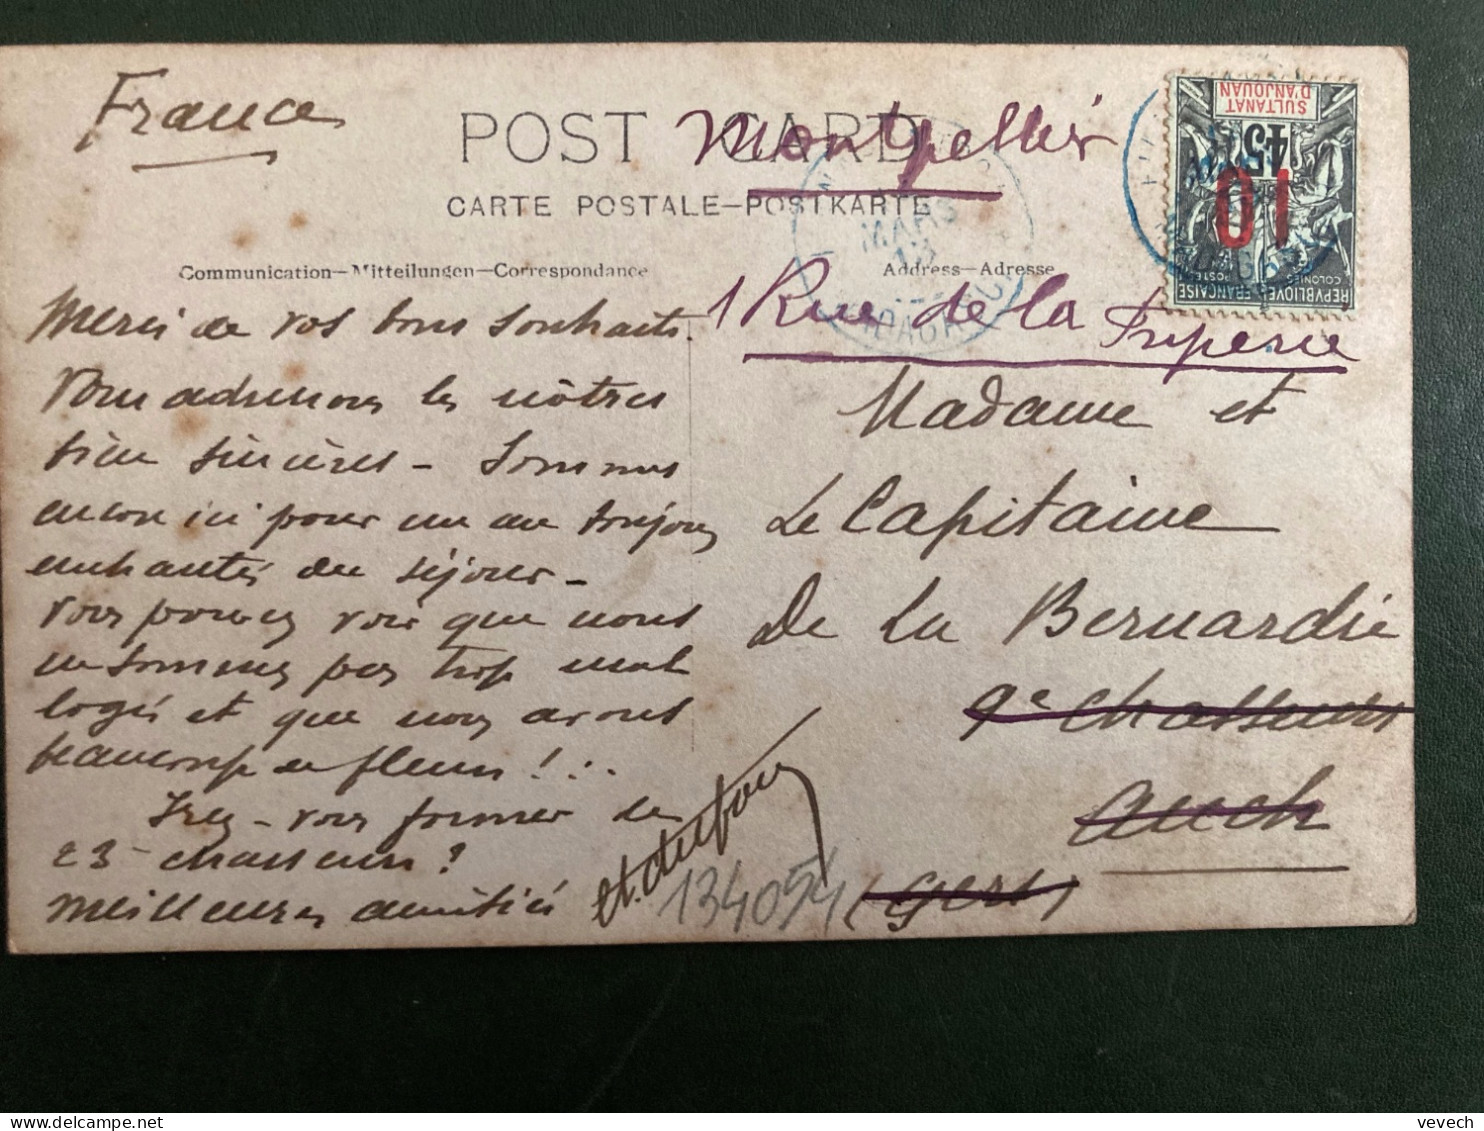 France
POST CARD
CARTE POSTALE—POSTKARTE
Communication—Mitteilungen—Correspondance
Address—Adresse
Montpellier
1 Rue de la
SULTANAT
D'ANJOUAN
45
10
REPUBLIQUE FRANÇAISE
COLONIES POSTES
MARS
Merci de vos bons souhaits.
Vous adressons les nôtres
bien sincères – Sommes
encore ici pour un an toujours
enchantés du séjour –
Vous pouvez voir que nous
ne sommes pas trop mal
logés et que nous avons
beaucoup de fleurs ! ..
Irez-vous former le
23e chasseurs ?
Meilleures amitiés
Madame et
Le Capitaine
De La Bernardie
9e chasseurs
Auch
(Gers)
134054
vevech